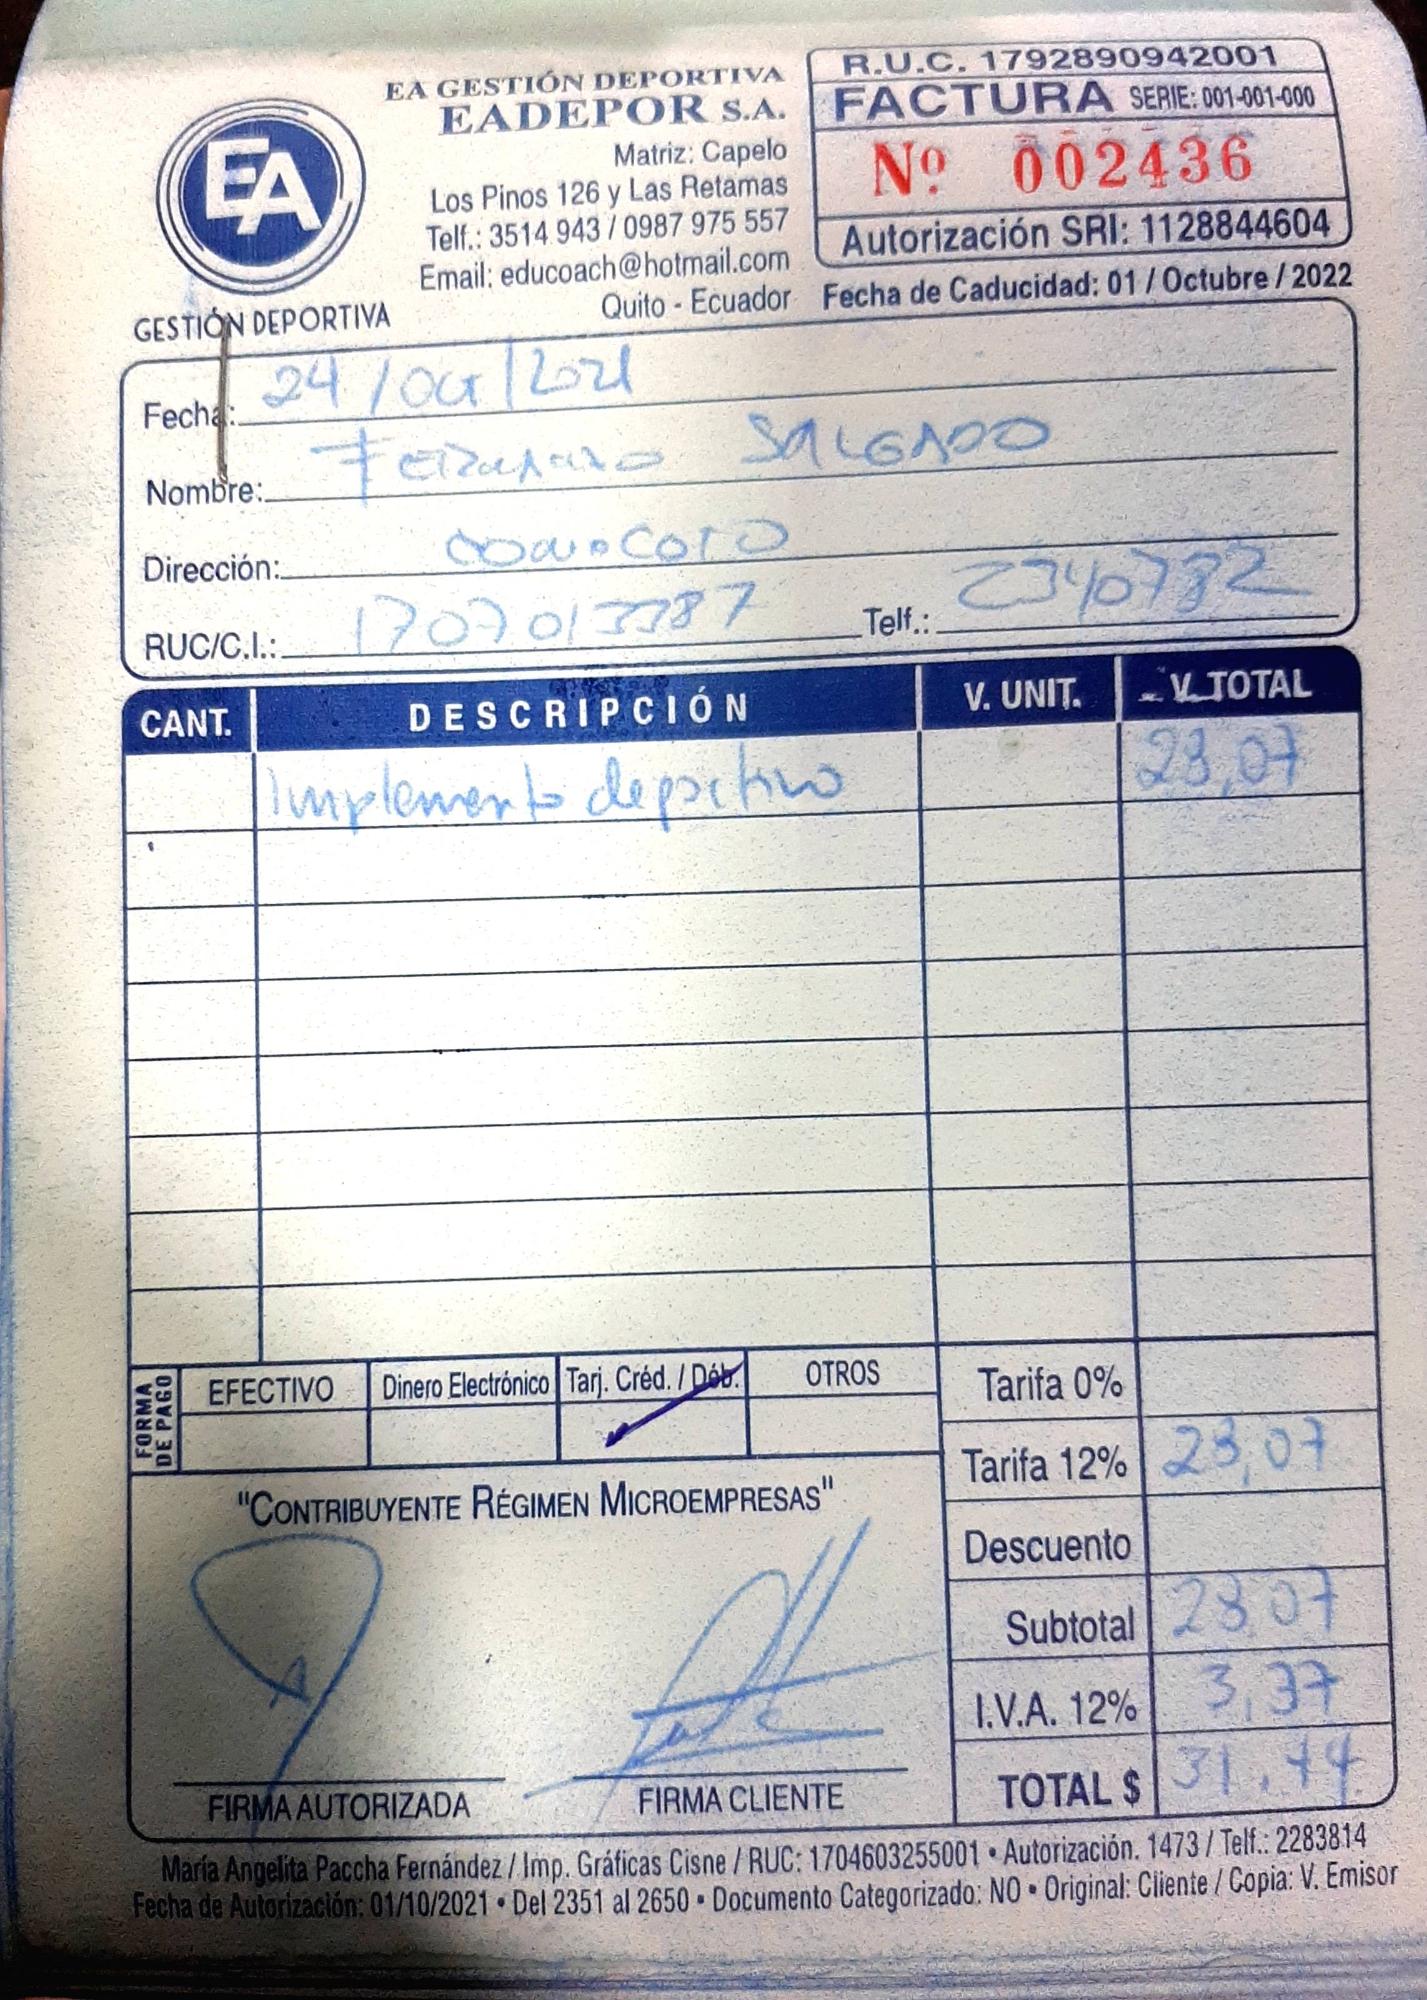 EA GESTIÓN DEPORTIVA
EADEPOR S.A.
Matriz: Capelo
Los Pinos 126 y Las Retamas
Telf.: 3514 943 / 0987 975 557
Email: educoach@hotmail.com
Quito - Ecuador
EA
GESTIÓN DEPORTIVA
R.U.C. 1792890942001
FACTURA SERIE: 001-001-000
Nº 002436
Autorización SRI: 1128844604
Fecha de Caducidad: 01 / Octubre / 2022
Fecha: 24 / Oct / 2021
Nombre: Fernando SALGADO
Dirección: CONOCOTO
RUC/C.I.: 1707013387 Telf.: 2340732
CANT. DESCRIPCIÓN V. UNIT. V. TOTAL
Implemento deportivo 28,07
FORMA DE PAGO EFECTIVO Dinero Electrónico Tarj. Créd. / Déb. OTROS
Tarifa 0%
Tarifa 12% 28,07
"CONTRIBUYENTE RÉGIMEN MICROEMPRESAS"
Descuento
Subtotal 28,07
I.V.A. 12% 3,37
TOTAL $ 31,44
FIRMA AUTORIZADA FIRMA CLIENTE
María Angelita Paccha Fernández / Imp. Gráficas Cisne / RUC: 1704603255001 • Autorización. 1473 / Telf.: 2283814
Fecha de Autorización: 01/10/2021 • Del 2351 al 2650 • Documento Categorizado: NO • Original: Cliente / Copia: V. Emisor